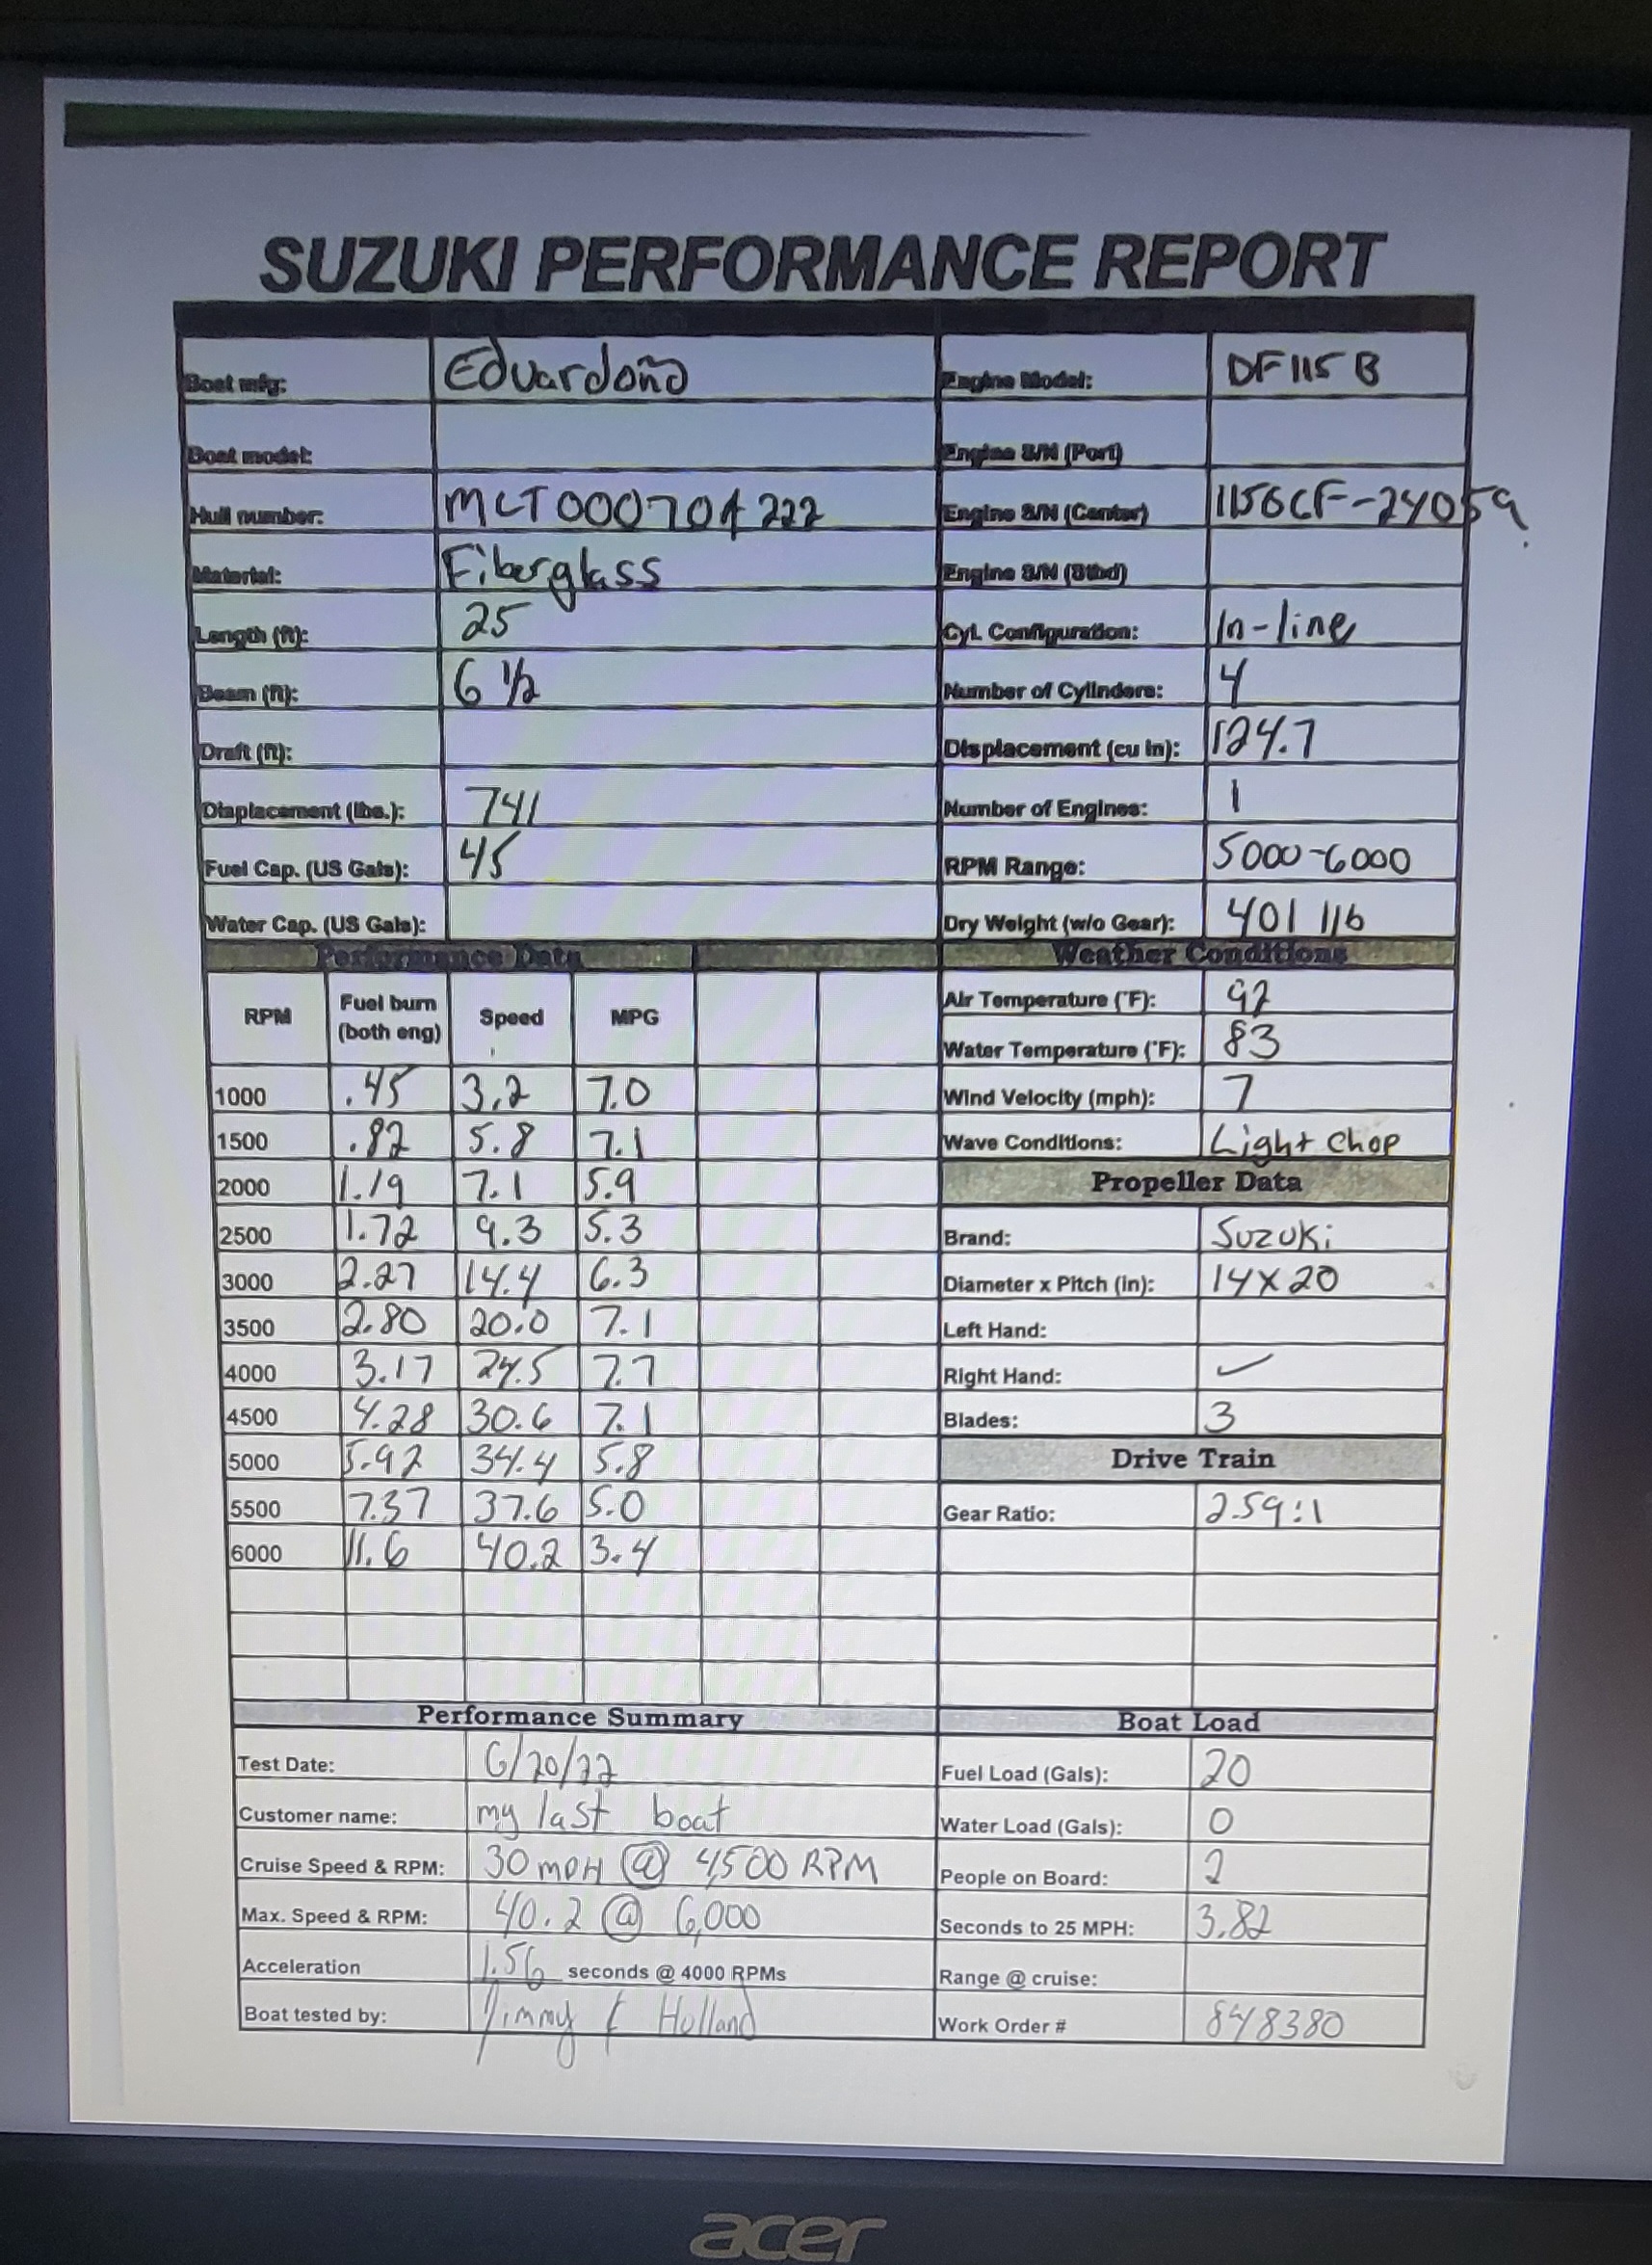 SUZUKI PERFORMANCE REPORT
Boat mfg: Eduardoño Engine Model: DF115B
Boat model: Engine S/N (Port)
Hull number: MCT000704222 Engine S/N (Center)
Material: Fiberglass Engine S/N (Stbd)
Length (ft): 25 Cyl. Configuration: In-line
Beam (ft): 6 1/2 Number of Cylinders: 4
Draft (ft): Displacement (cu in): 124.7
Displacement (lbs.): 741 Number of Engines: 1
Fuel Cap. (US Gals): 45 RPM Range: 5000-6000
Water Cap. (US Gals): Dry Weight (w/o Gear): 401
Performance Data Weather Conditions
RPM Fuel burn (both eng) Speed MPG Air Temperature (°F): 92
Water Temperature (°F): 83
1000 .45 3.2 7.0 Wind Velocity (mph): 7
1500 .82 5.8 7.1 Wave Conditions: Light chop
2000 1.19 7.1 5.9 Propeller Data
2500 1.72 9.3 5.3 Brand: Suzuki
3000 2.27 14.4 6.3 Diameter x Pitch (in): 14x20
3500 2.80 20.0 7.1 Left Hand:
4000 3.17 24.5 7.7 Right Hand: ✓
4500 4.28 30.6 7.1 Blades: 3
5000 5.92 34.4 5.8 Drive Train
5500 7.37 37.6 5.0 Gear Ratio: 2.59:1
6000 11.6 40.2 3.4
Performance Summary Boat Load
Test Date: 6/20/22 Fuel Load (Gals): 20
Customer name: my last boat Water Load (Gals): 0
Cruise Speed & RPM: 30 mpH @ 4,500 RPM People on Board: 2
Max. Speed & RPM: 40.2 @ 6,000 Seconds to 25 MPH: 3.82
Acceleration 1.56 seconds @ 4000 RPMs Range @ cruise:
Boat tested by: Jimmy & Holland Work Order # 848380
acer